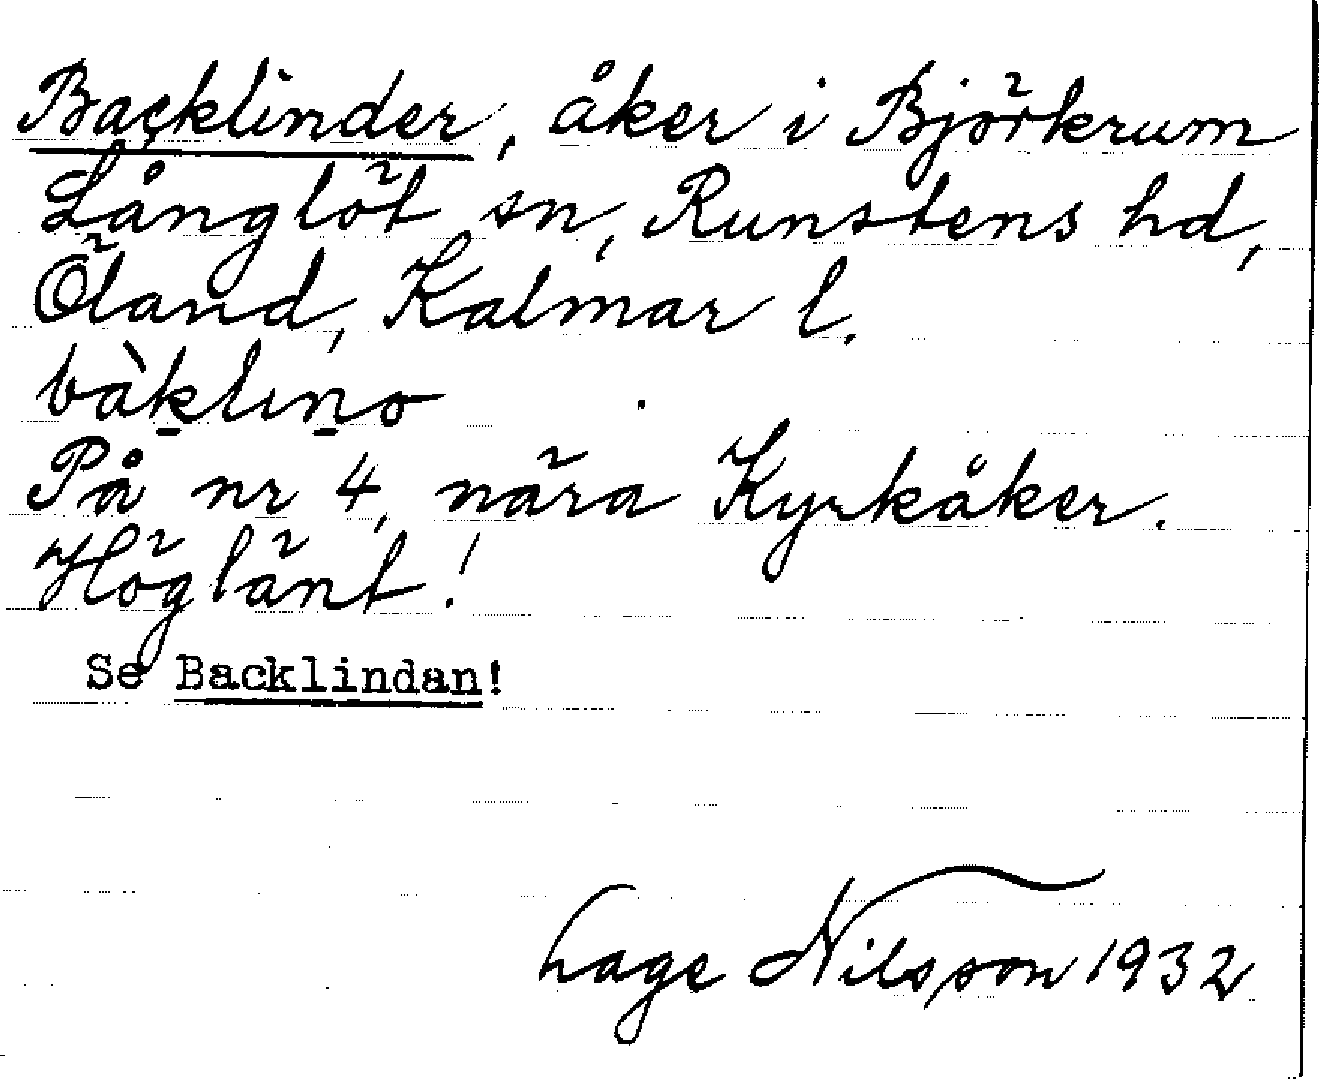 Backlinder, åker i Björkrum
Långlöt sn, Runstens hd,
Öland, Kalmar l.
bàk̲lın̲o
På nr 4, nära Kyrkåker.
Höglänt!
Se Backlindan!
Lage Nilsson 1932